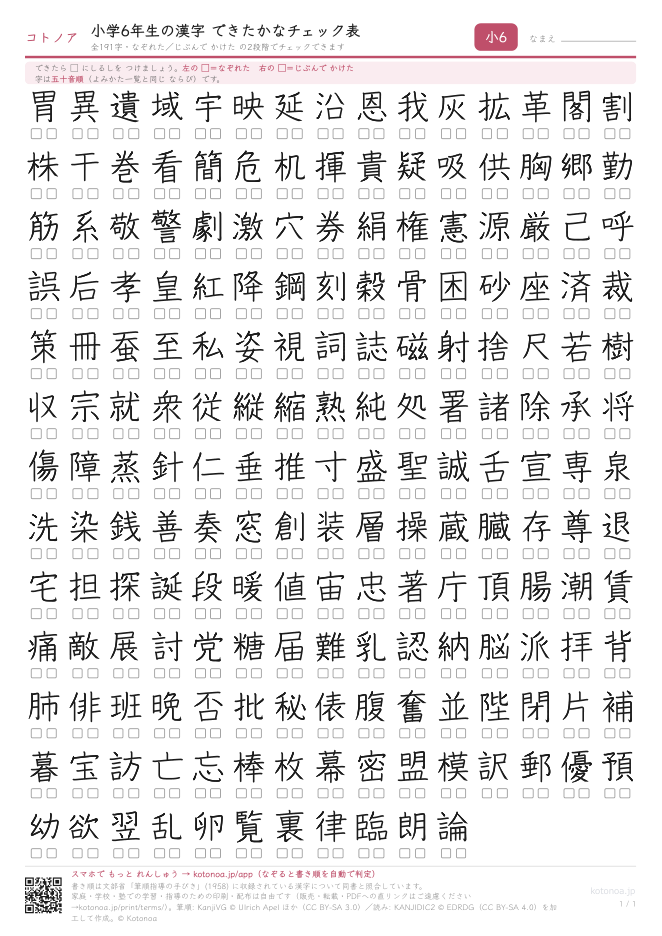 コトノア
小学6年生の漢字 できたかなチェック表
全191字・なぞれた／じぶんで かけた の2段階でチェックできます
小6
なまえ
できたら □ にしるしを つけましょう。左の □＝なぞれた 右の □＝じぶんで かけた
字は五十音順（よみかた一覧と同じ ならび）です。
胃 異 遺 域 宇 映 延 沿 恩 我 灰 拡 革 閣 割
株 干 巻 看 簡 危 机 揮 貴 疑 吸 供 胸 郷 勤
筋 系 敬 警 劇 激 穴 券 絹 権 憲 源 厳 己 呼
誤 后 孝 皇 紅 降 鋼 刻 穀 骨 困 砂 座 済 裁
策 冊 蚕 至 私 姿 視 詞 誌 磁 射 捨 尺 若 樹
収 宗 就 衆 従 縦 縮 熟 純 処 署 諸 除 承 将
傷 障 蒸 針 仁 垂 推 寸 盛 聖 誠 舌 宣 専 泉
洗 染 銭 善 奏 窓 創 装 層 操 蔵 臓 存 尊 退
宅 担 探 誕 段 暖 値 宙 忠 著 庁 頂 腸 潮 賃
痛 敵 展 討 党 糖 届 難 乳 認 納 脳 派 拝 背
肺 俳 班 晩 否 批 秘 俵 腹 奮 並 陛 閉 片 補
暮 宝 訪 亡 忘 棒 枚 幕 密 盟 模 訳 郵 優 預
幼 欲 翌 乱 卵 覧 裏 律 臨 朗 論
スマホで もっと れんしゅう → kotonoa.jp/app（なぞると書き順を自動で判定）
書き順は文部省「筆順指導の手びき」(1958) に収録されている漢字について同書と照合しています。
家庭・学校・塾での学習・指導のための印刷・配布は自由です（販売・転載・PDFへの直リンクはご遠慮ください
→kotonoa.jp/print/terms/）。筆順: KanjiVG © Ulrich Apel ほか（CC BY-SA 3.0）／読み: KANJIDIC2 © EDRDG（CC BY-SA 4.0）を加
工して作成。© Kotonoa
kotonoa.jp
1 / 1